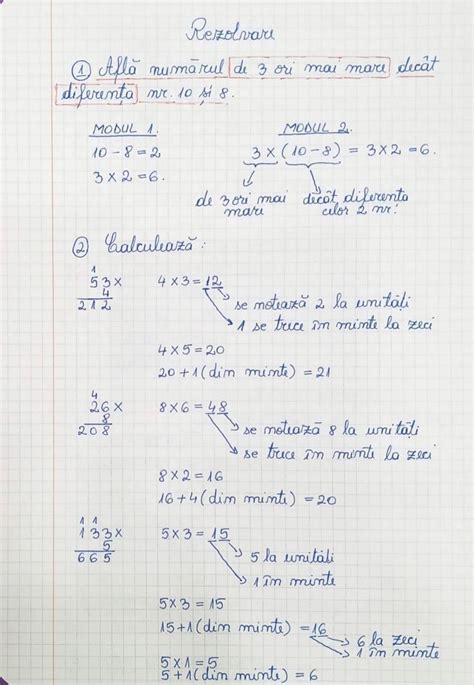 Rezolvare
① Află numărul de 3 ori mai mare decât
diferența nr. 10 și 8.
MODUL 1.
10 - 8 = 2
3 x 2 = 6.
MODUL 2.
3 x (10 - 8) = 3 x 2 = 6.
de 3 ori mai
mare
decât diferența
celor 2 nr.
② Calculează:
1
53 x
4
212
4 x 3 = 12
se notează 2 la unități
1 se trece în minte la zeci
4 x 5 = 20
20 + 1 (din minte) = 21
4
26 x
8
208
8 x 6 = 48
se notează 8 la unități
se trece în minte la zeci
8 x 2 = 16
16 + 4 (din minte) = 20
1 1
133 x
5
665
5 x 3 = 15
5 la unități
1 în minte
5 x 3 = 15
15 + 1 (din minte) = 16
6 la zeci
1 în minte
5 x 1 = 5
5 + 1 (din minte) = 6